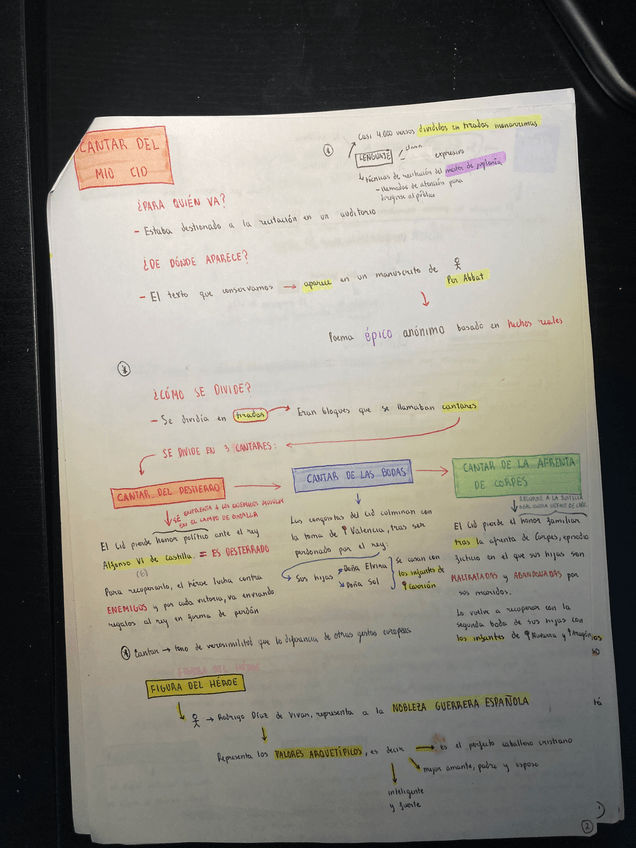 CANTAR DEL
MIO CID
Casi 4.000 versos divididos en tiradas monorrimas
LENGUAJE
expresivo
técnicas de recitación del mester de juglaría
- llamadas de atención para
dirigirse al público
¿PARA QUIÉN VA?
- Estaba destionado a la recitación en un auditorio
¿DE DÓNDE APARECE?
- El texto que conservamos → aparece en un manuscrito de
Per Abbat
Poema épico anónimo basado en hechos reales
¿CÓMO SE DIVIDE?
- Se dividía en tiradas → Eran bloques que se llamaban cantares
SE DIVIDE EN 3 CANTARES:
CANTAR DEL DESTIERRO
CANTAR DE LAS BODAS
CANTAR DE LA AFRENTA
DE CORPES
SE ENFRENTA A LOS ENEMIGOS
EN EL CAMPO DE BATALLA
El Cid pierde honor político ante el rey
Alfonso VI de Castilla. = ES DESTERRADO
(6)
Para recuperarlo, el héroe lucha contra
ENEMIGOS y por cada victoria, va enviando
regalos al rey en forma de perdón
Las conquistas del Cid culminan con
la toma de Valencia, tras ser
perdonado por el rey.
Sus hijas Doña Elvira
Doña Sol
Se casan con
los infantes de
Carrión
RECURRE A LA JUSTICIA
El Cid pierde el honor familiar
tras la afrenta de Corpes, episodio
ficticio en el que sus hijas son
MALTRATADAS y ABANDONADAS por
sus maridos.
Lo vuelve a recuperar con la
segunda boda de sus hijas con
los infantes de Navarra y Aragón
Cantar → tono de verosimilitud que lo diferencia de otras gestas europeas
FIGURA DEL HÉROE
→ Rodrigo Díaz de Vivar, representa a la NOBLEZA GUERRERA ESPAÑOLA
Representa los VALORES ARQUETÍPICOS, es decir → es el perfecto caballero cristiano
mejor amante, padre y esposo
inteligente
y fuerte
2